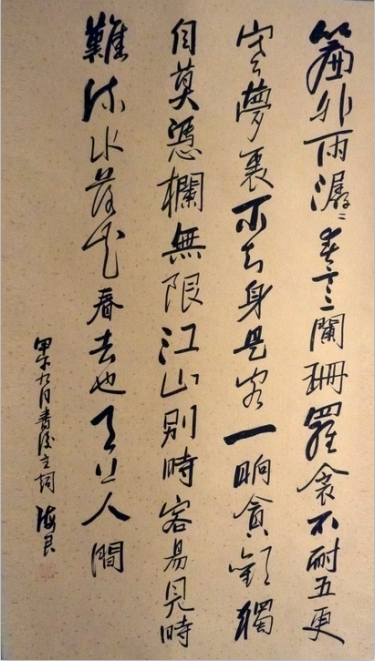 簾外雨潺〻春意闌珊羅衾不耐五更
寒夢裏不知身是客一晌貪歡獨
自莫憑欄無限江山別時容易見時
難流水落花春去也天上人間
甲午九月書後主詞